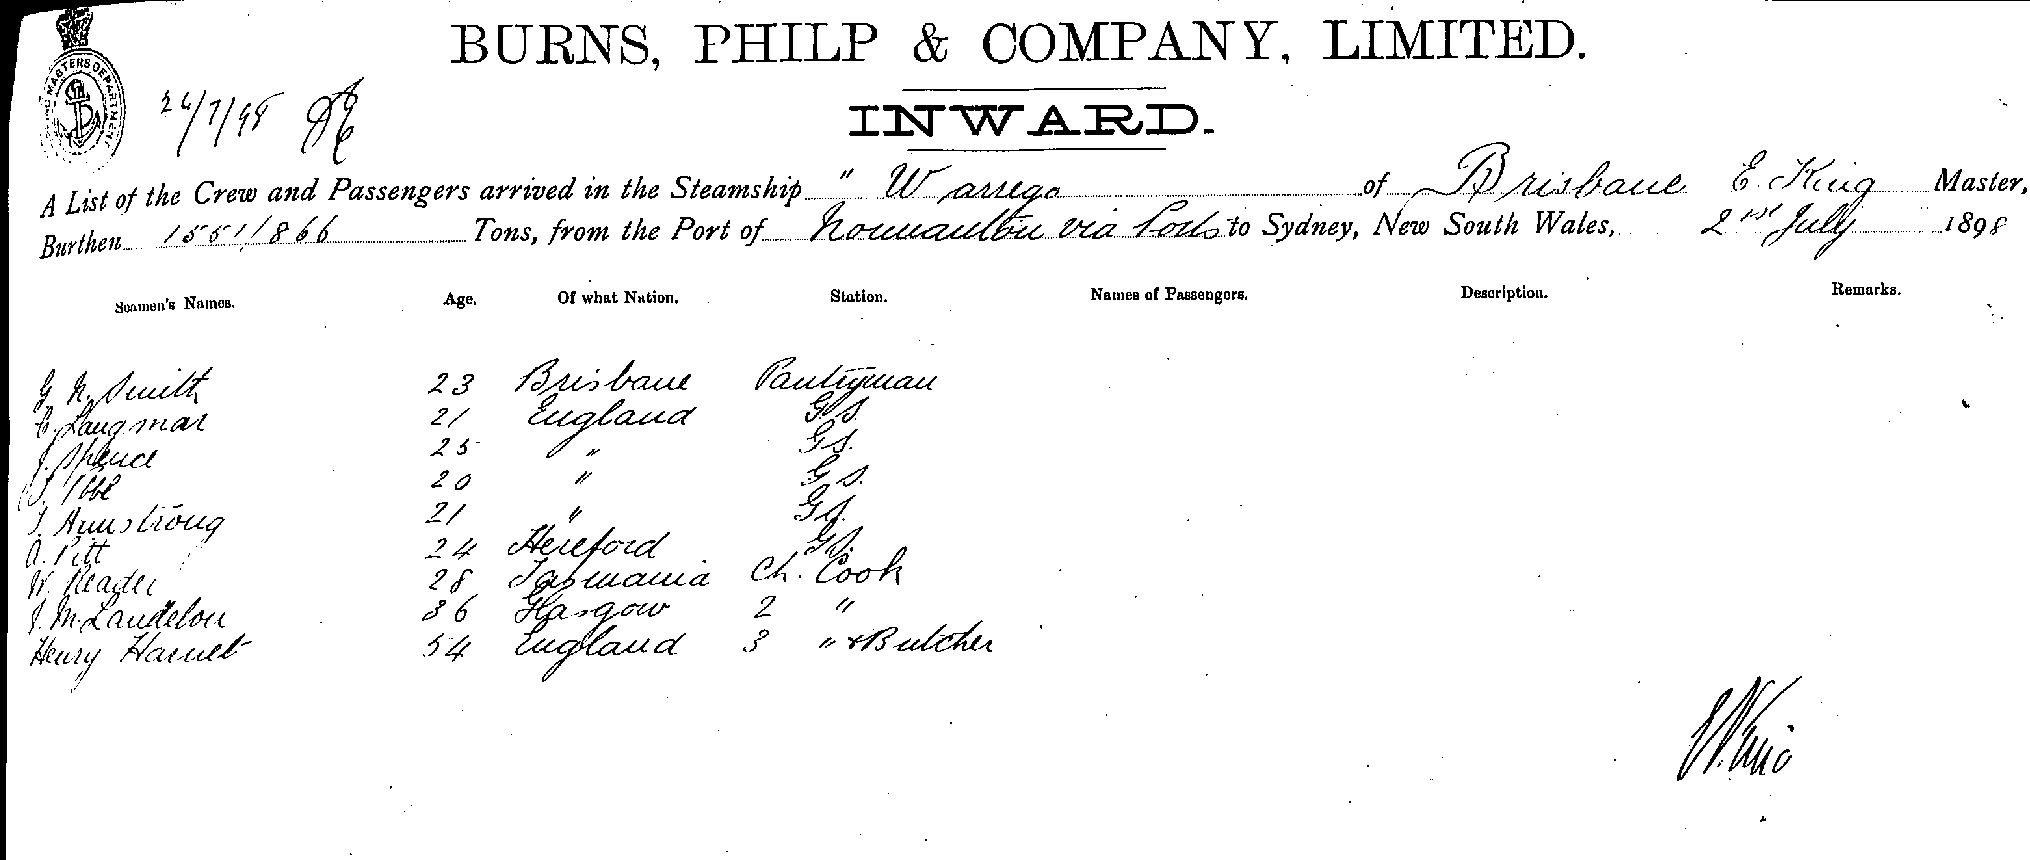 BURNS, PHILP & COMPANY, LIMITED.
MASTERS DEPARTMENT
INWARD.
A List of the Crew and Passengers arrived in the Steamship " Warrego of Brisbane E. King Master,
Burthen 1551/866 Tons, from the Port of Normanton via Ports to Sydney, New South Wales, 21st July 1898
Seamen's Names. Age. Of what Nation. Station. Names of Passengers. Description. Remarks.
G N. Smith 23 Brisbane Pantryman
Langmar 21 England G.S.
J. Spence 25 " G.S.
20 " G.S.
Armstrong 21 " G.S.
A. Pitt 24 Hereford G.S.
W. Reader 28 Tasmania Ch. Cook
36 Glasgow 2 "
Henry Harnet 54 England 3 " & Butcher